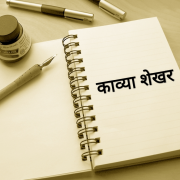 काव्या शेखर